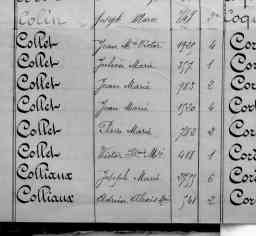 Colin Joseph Marie
Coq
Collet Jean Mie Victor 1920 4 Cor
Collet Julien Marie 257 1 Cor
Collet Jean Marie 983 2 Cor
Collet Jean Marie 1580 4 Cor
Collet Pierre Marie 782 2 Cor
Collet Victor 418 1 Cor
Colliaux Joseph Marie 6 Cor
Colliaux Adrien Alexis 541 2 Cor